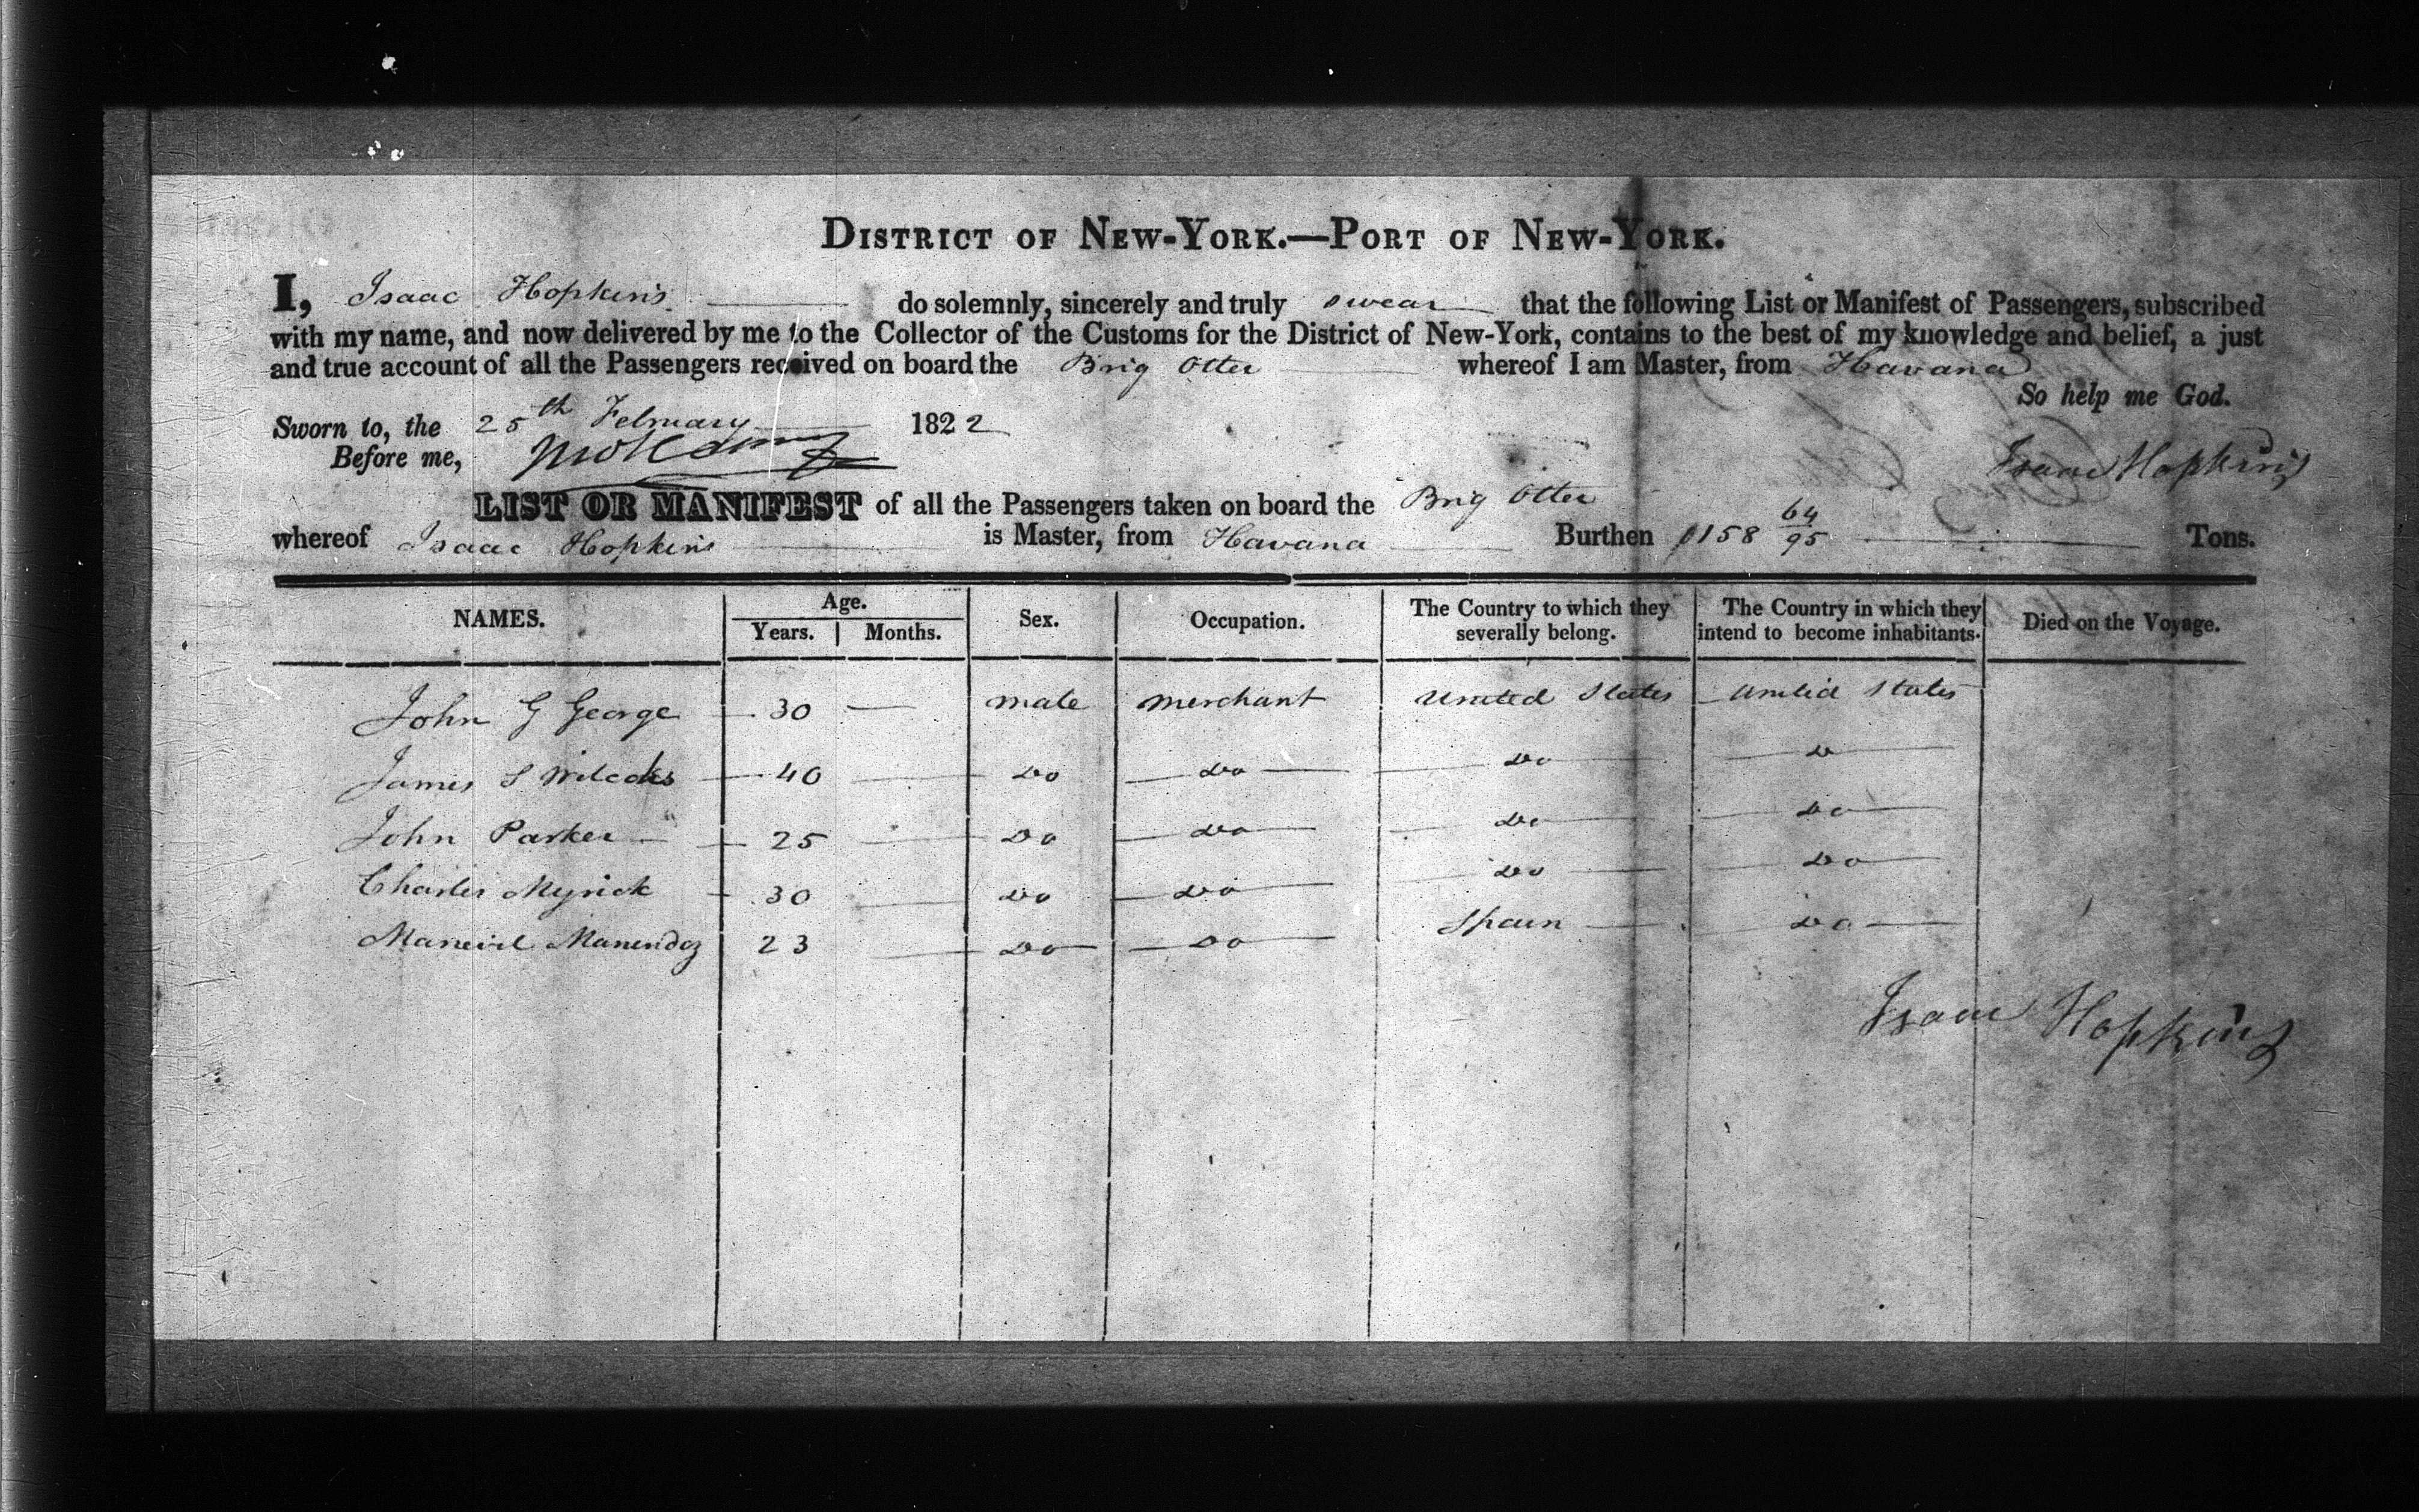 DISTRICT OF NEW-YORK.—PORT OF NEW-YORK.
I, Isaac Hopkins do solemnly, sincerely and truly swear that the following List or Manifest of Passengers, subscribed
with my name, and now delivered by me to the Collector of the Customs for the District of New-York, contains to the best of my knowledge and belief, a just
and true account of all the Passengers received on board the Brig Otter whereof I am Master, from Havana
So help me God.
Sworn to, the 25th February 1822
Before me,
Isaac Hopkins
LIST OR MANIFEST of all the Passengers taken on board the Brig Otter
whereof Isaac Hopkins is Master, from Havana Burthen 158 64/95 Tons.
NAMES. Age. Years. Months. Sex. Occupation. The Country to which they severally belong. The Country in which they intend to become inhabitants. Died on the Voyage.
John G George 30 — male merchant United States United States
James S Wilcoks 40 Do Do Do Do
John Parker 25 Do Do Do Do
Charles Myrick 30 Do Do Do Do
23 Do Do Spain Do
Isaac Hopkins